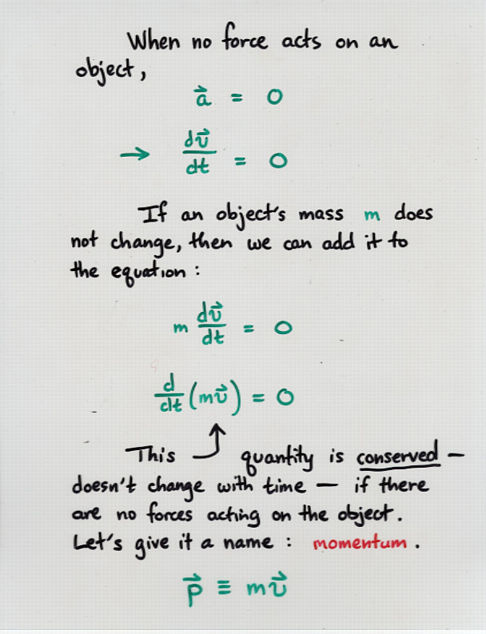 When no force acts on an
object,
a⃗ = 0
→ dv⃗/dt = 0
If an object's mass m does
not change, then we can add it to
the equation :
m dv⃗/dt = 0
d/dt (mv⃗) = 0
This ↑ quantity is conserved —
doesn't change with time — if there
are no forces acting on the object.
Let's give it a name : momentum.
p⃗ ≡ mv⃗